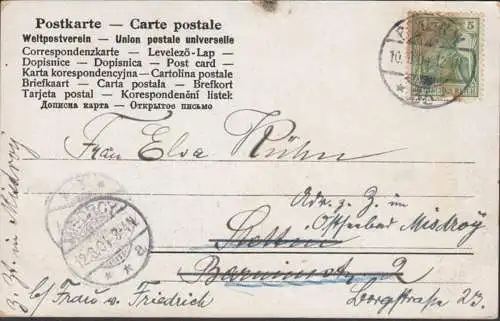 Postkarte — Carte postale
Weltpostverein — Union postale universelle
Correspondenzkarte — Levelező-Lap —
Dopisnice — Dopisnica — Post card —
Karta korespondencyjna — Cartolina postale
Briefkaart — Carta postala — Brefkort
Tarjeta postal — Korespondenční listek
Дописна карта — Открытое письмо
5
Frau Elva Kühn
Adr. z. Z. im
Stettin
Ostseebad Misdroy
Barnimstr. 2
b/ Frau v. Friedrich
Bergstraße 23.
z. Zt. in Misdroy
MISDROY
a